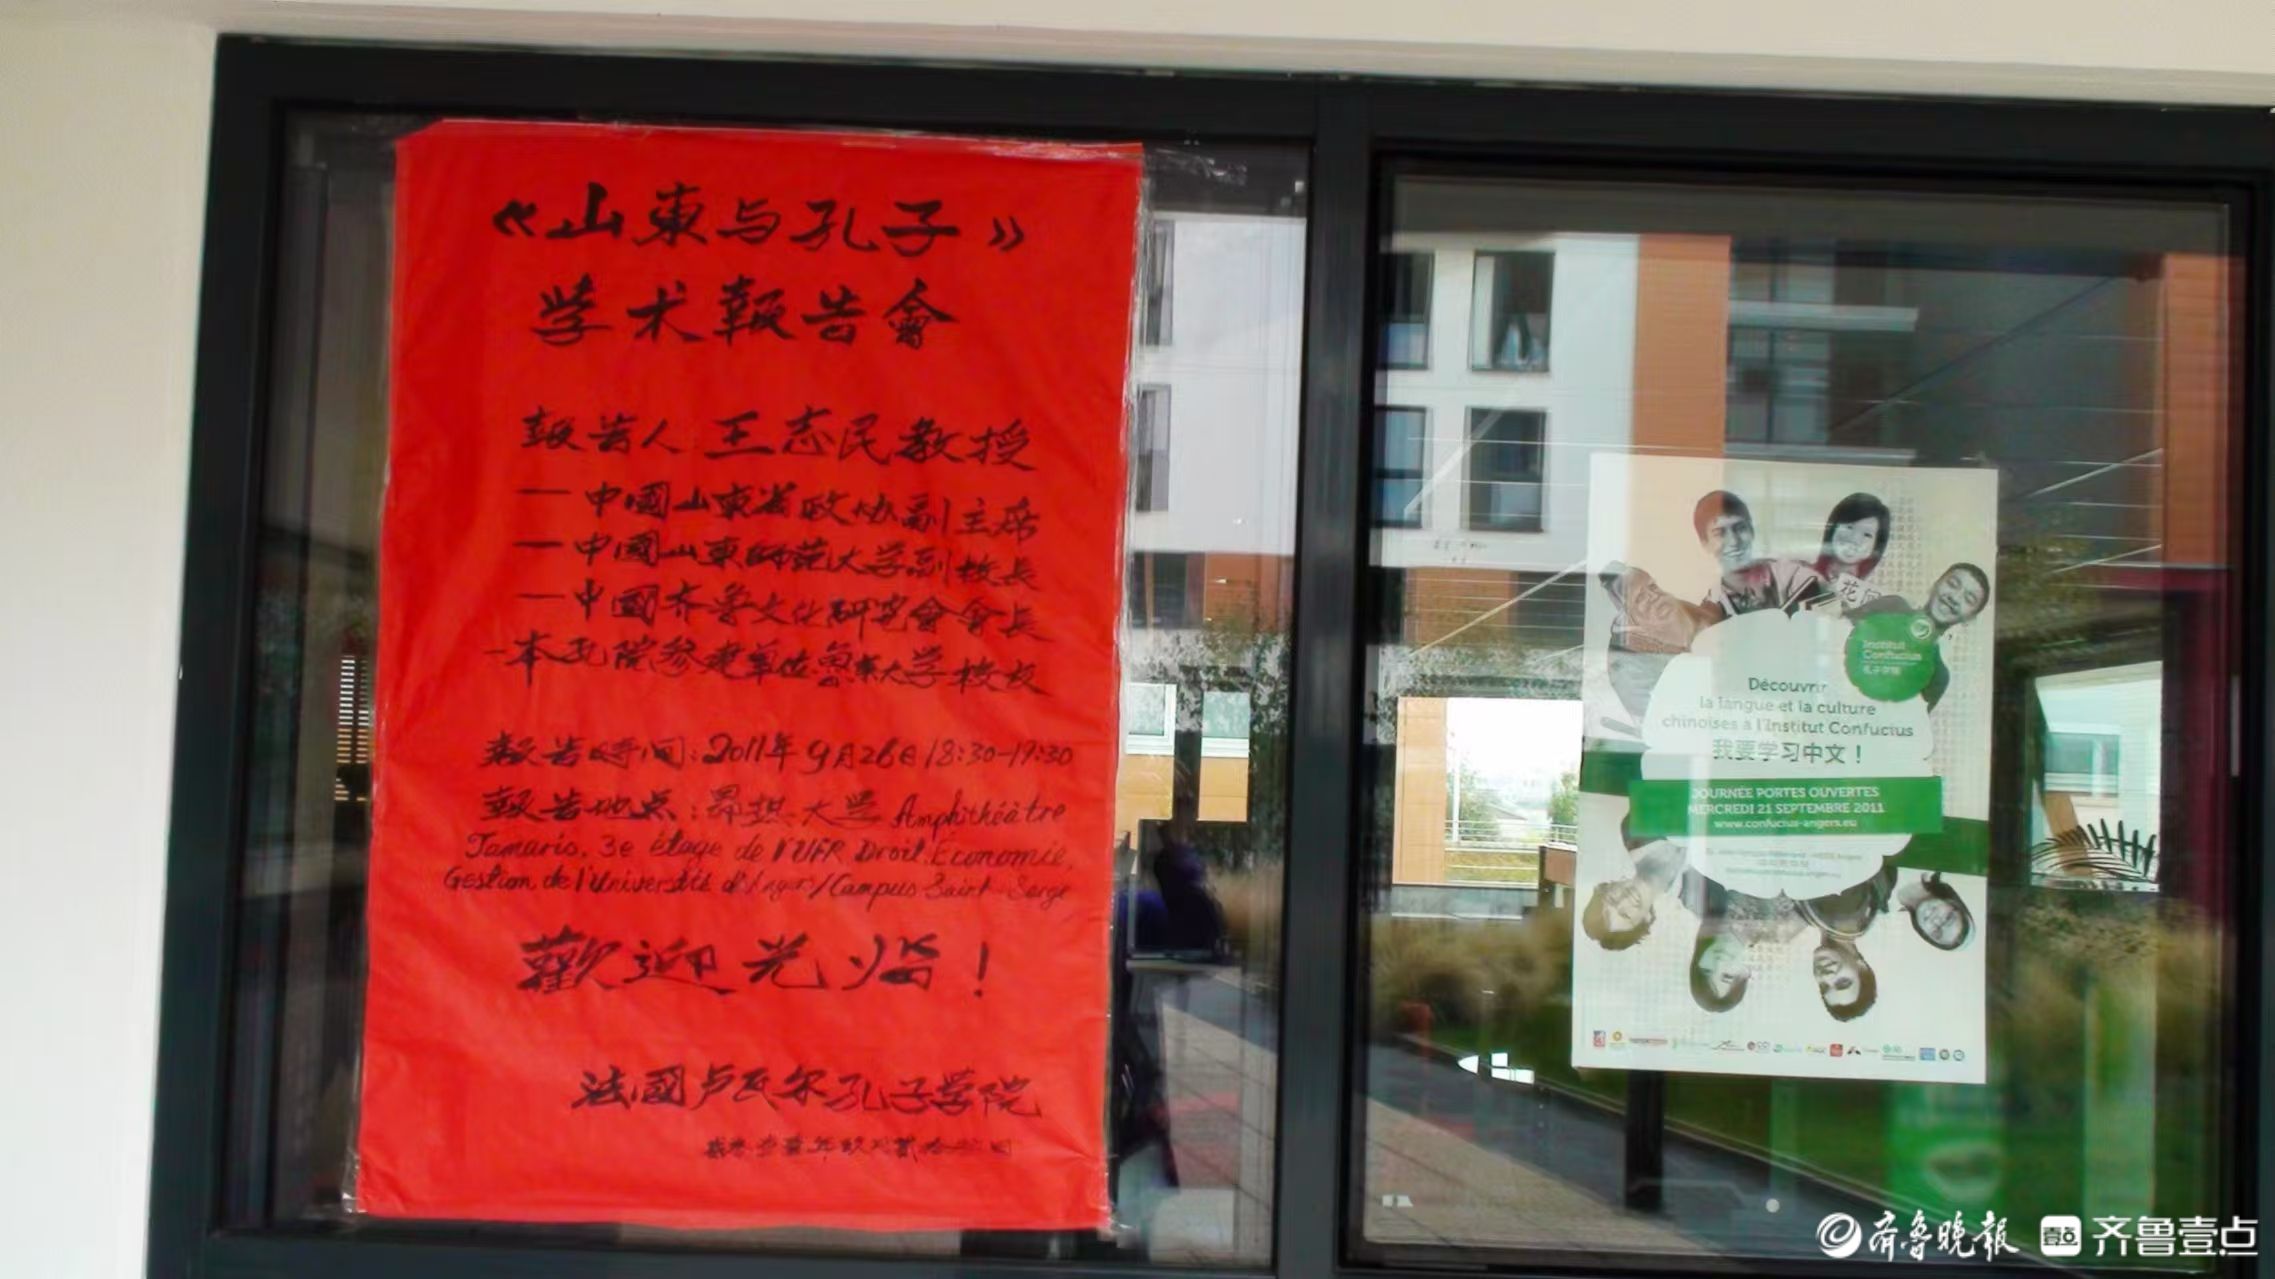 《山東与孔子》
学术報告會
報告人:王志民教授
一中國山東省政协副主席
一中國山東师范大学副校长
一中國齐鲁文化研究會會長
一本孔院参建单位鲁东大学校友
報告时间:2011年9月26日18:30-19:30
報告地点:昂热大学 Amphithéâtre
Tamaris, 3e étage de l'UFR Droit, Economie,
Gestion de l'Université d'Angers/Campus Saint-Serge
歡迎光临!
法國卢瓦尔孔子学院
花
Institut
Confucius
孔子学院
Découvrir
la langue et la culture
chinoises à l'Institut Confucius
我要学习中文!
JOURNÉE PORTES OUVERTES
MERCREDI 21 SEPTEMBRE 2011
www.confucius-angers.eu
齐鲁晚报
壹点
齐鲁壹点